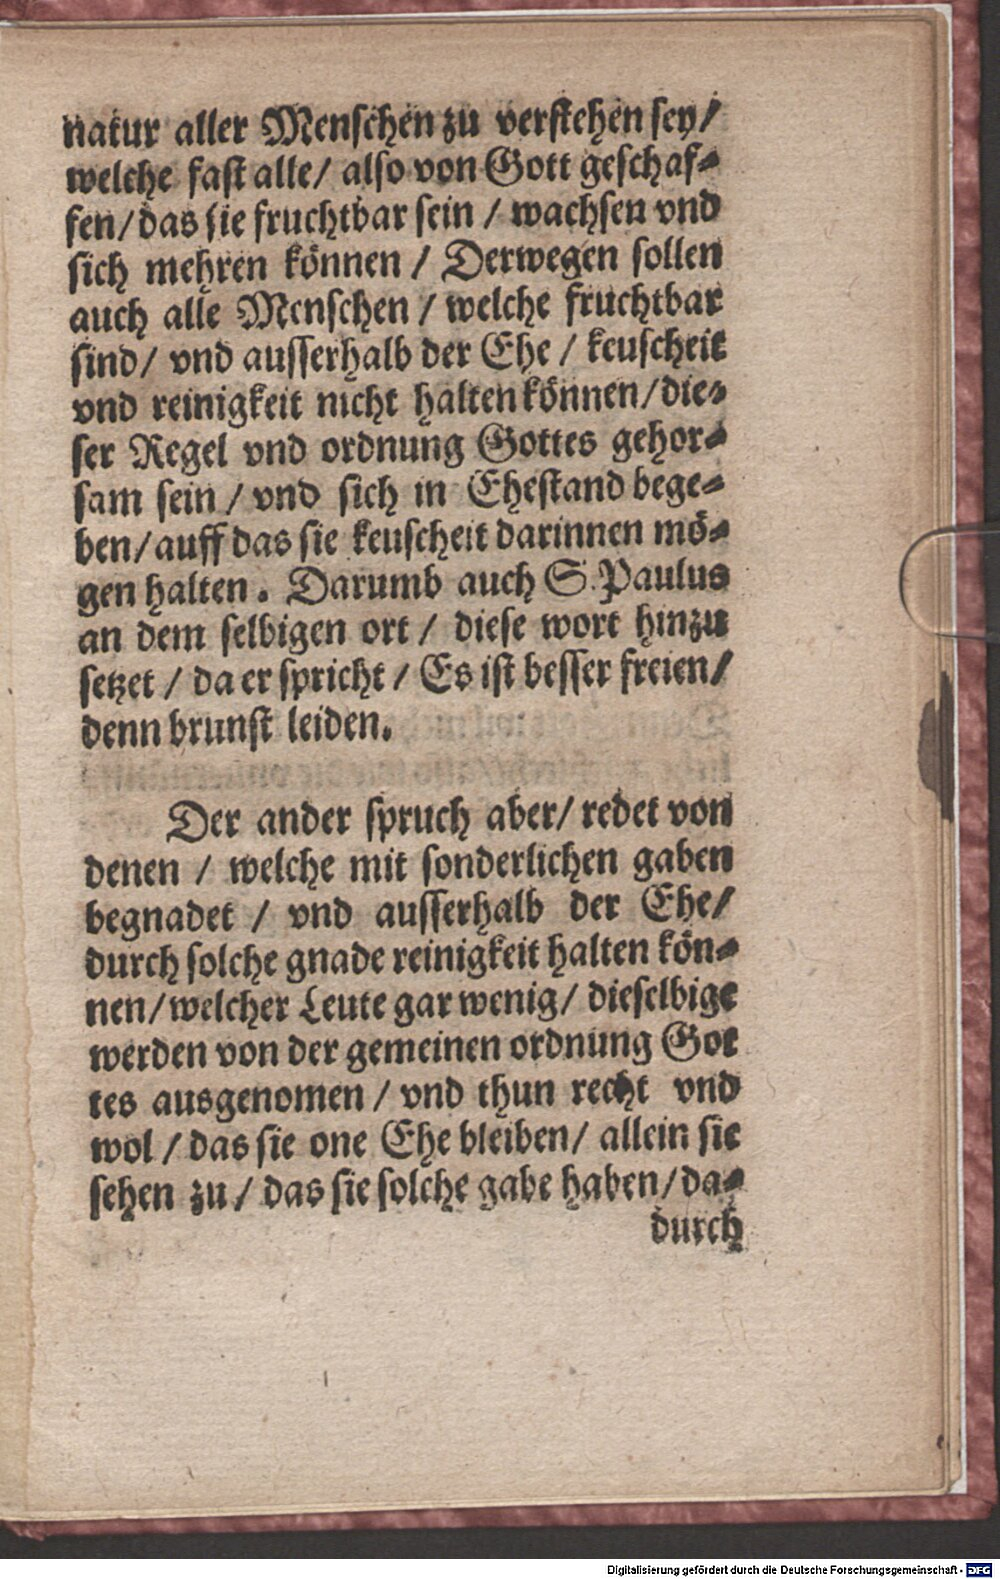 natur aller Menschen zu verstehen sey/
welche fast alle/ also von Gott geschaf⸗
fen/das sie fruchtbar sein / wachsen vnd
sich mehren können / Derwegen sollen
auch alle Menschen / welche fruchtbar
sind/ vnd ausserhalb der Ehe / keuscheit
vnd reinigkeit nicht halten können/die⸗
ser Regel vnd ordnung Gottes gehor⸗
sam sein / vnd sich in Ehestand bege⸗
ben/auff das sie keuscheit darinnen mö⸗
gen halten. Darumb auch S. Paulus
an dem selbigen ort / diese wort hinzu
setzet / da er spricht / Es ist besser freien/
denn brunst leiden.
Der ander spruch aber/ redet von
denen / welche mit sonderlichen gaben
begnadet / vnd ausserhalb der Ehe/
durch solche gnade reinigkeit halten kön⸗
nen/welcher Leute gar wenig/ dieselbige
werden von der gemeinen ordnung Got
tes ausgenomen / vnd thun recht vnd
wol / das sie one Ehe bleiben/ allein sie
sehen zu / das sie solche gabe haben/da⸗
durch
Digitalisierung gefördert durch die Deutsche Forschungsgemeinschaft - DFG